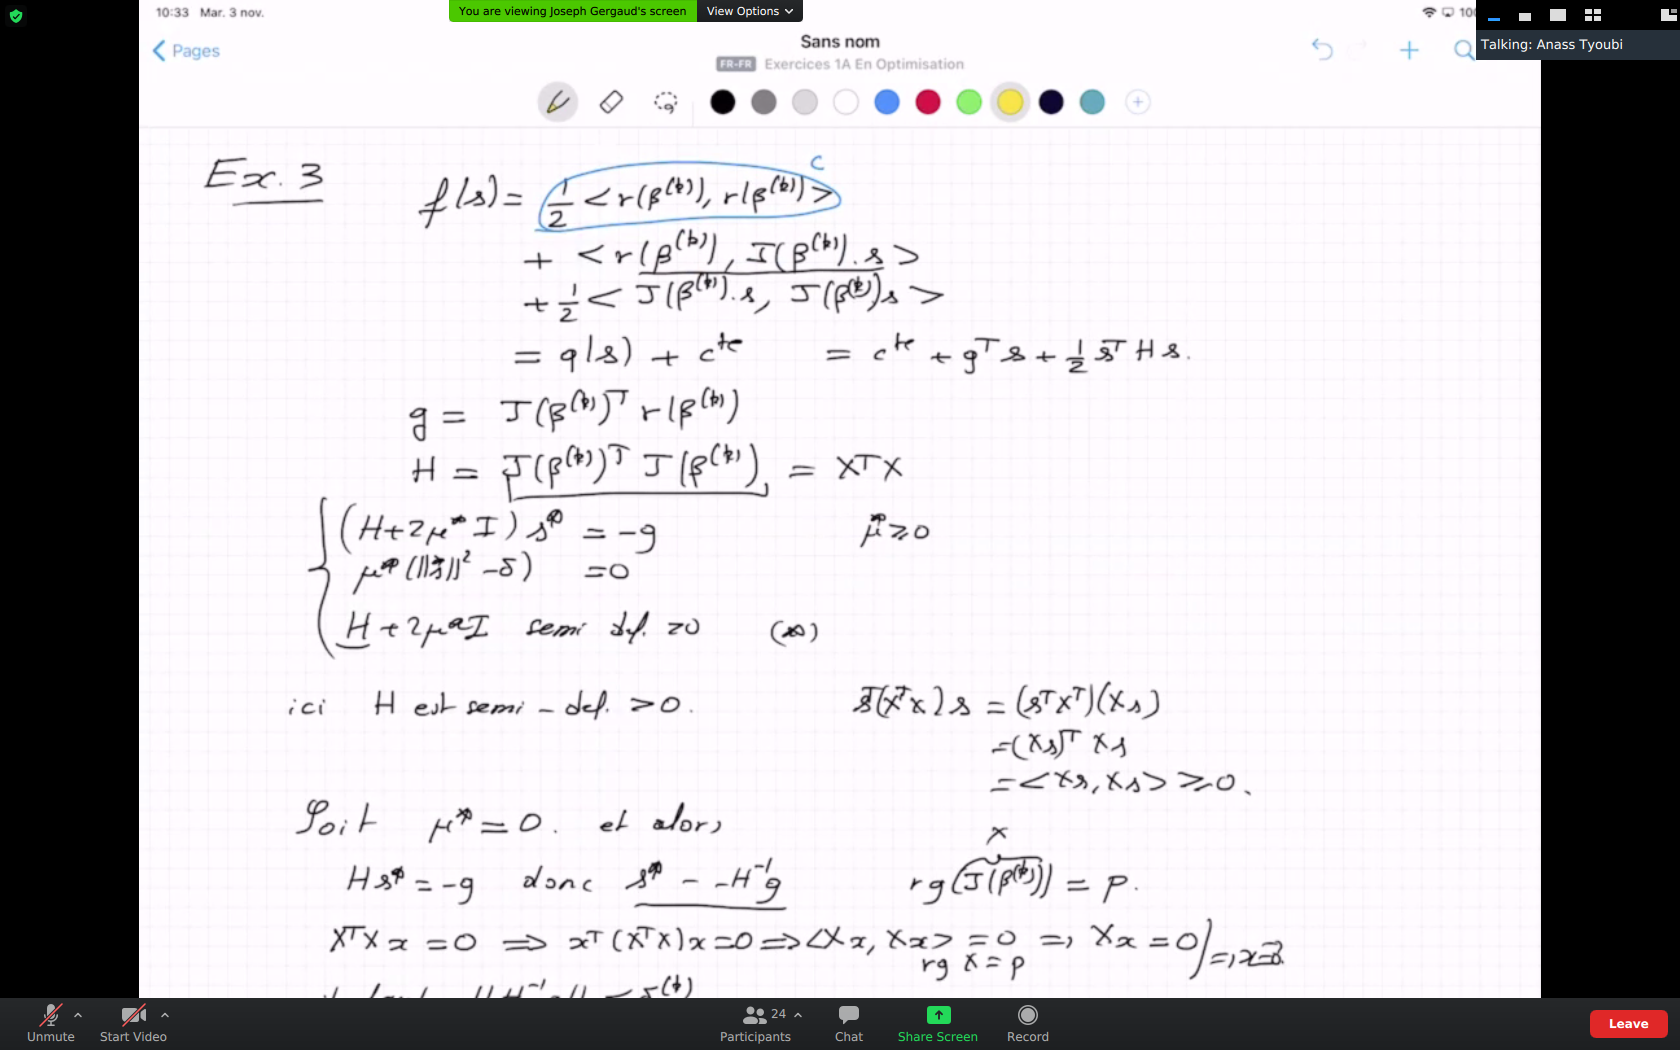 10:33 Mar. 3 nov.
You are viewing Joseph Gergaud's screen
View Options
Talking: Anass Tyoubi
Pages
Sans nom
FR-FR Exercices 1A En Optimisation
Ex. 3
f(s) = 1/2 < r(β^(k)), r(β^(k)) > c
+ < r(β^(k)), J(β^(k)).s >
+ 1/2 < J(β^(k)).s, J(β^(k))s >
= q(s) + c^te = c^te + g^T s + 1/2 s^T H s.
g = J(β^(k))^T r(β^(k))
H = J(β^(k))^T J(β^(k)) = X^T X
(H+2μ* I) s* = -g μ* ≥ 0
μ* (||s*||² - δ) = 0
H + 2μ* I semi def. ≥0 (*)
ici H est semi-def. >0. s^T(X^T X)s = (s^T X^T)(Xs)
= (Xs)^T Xs
= <Xs, Xs> ≥ 0.
Soit μ* = 0. et alors
X
Hs* = -g donc s* = -H^-1 g rg(J(β^(k))) = p.
X^T X x = 0 ⇒ x^T (X^T X) x = 0 ⇒ <Xx, Xx> = 0 ⇒ Xx = 0
rg X = p ⇒ x=0
Unmute
Start Video
24
Participants
Chat
Share Screen
Record
Leave